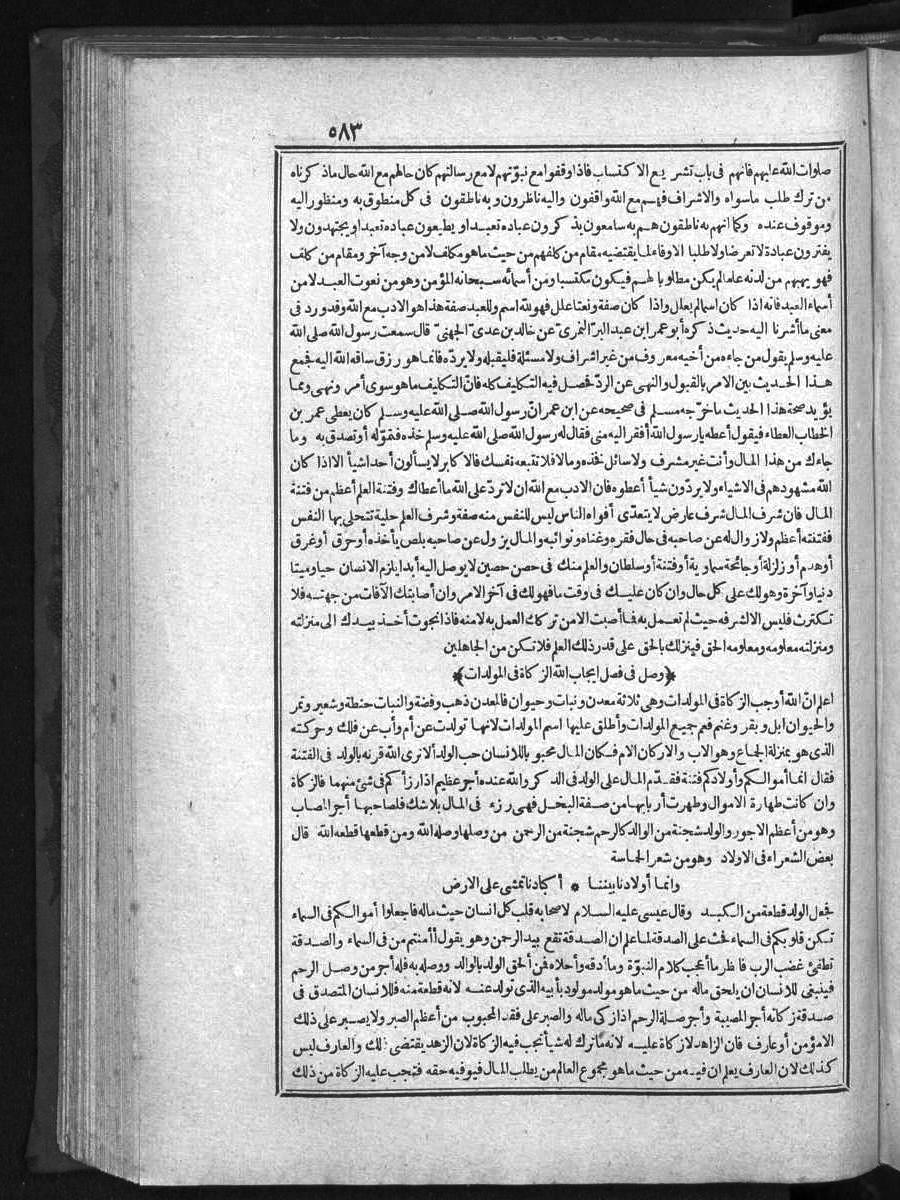 ٥٨٣
صلوات الله عليهم فانهم فى باب تشريع الاكتساب فاذا وقفوا مع نبوّتهم لا مع رسالتهم كان حالهم مع الله حال ماذكرناه
من ترك طلب ماسواه والاشراف فهم مع الله واقفون واليه ناظرون وبه ناطقون فى كل منطوق به ومنظور اليه
وموقوف عنده وكما انهم به ناطقون هم به سامعون يذكرون عباده تعبدا ويطيعون عباده تعبدا ويجتهدون ولا
يفترون عبادة لا تعرضا ولا طلبا الا وفاء لما يقتضيه مقام من كلفهم من حيث ماهو مكلف لا من وجه آخر ومقام من كلف
فهو يهبهم من لدنه علما لم يكن مطلوبا لهم فيكون مكتسبا ومن أسمائه سبحانه المؤمن وهو من نعوت العبد لا من
أسماء العبد فانه اذا كان اسما لم يعلل واذا كان صفة ونعتا علل فهو لله اسم وللعبد صفة هذا هو الادب مع الله وقد ورد فى
معنى ما أشرنا اليه حديث ذكره أبو عمر ابن عبد البرّ النمرى عن خالد بن عدىّ الجهنىّ قال سمعت رسول الله صلى الله
عليه وسلم يقول من جاءه من أخيه معروف من غير اشراف ولا مسئلة فليقبله ولا يردّه فانما هو رزق ساقه الله اليه فجمع
هذا الحديث بين الامر بالقبول والنهى عن الردّ فحصل فيه التكليف كله فانّ التكليف ماهو سوى أمر ونهى ومما
يؤيد صحة هذا الحديث ما خرّجه مسلم فى صحيحه عن ابن عمر انّ رسول الله صلى الله عليه وسلم كان يعطى عمر بن
الخطاب العطاء فيقول أعطه يارسول الله أفقر اليه منى فقال له رسول الله صلى الله عليه وسلم خذه فتموّله أو تصدق به وما
جاءك من هذا المال وأنت غير مشرف ولا سائل فخذه ومالا فلا تتبعه نفسك فالاكابر لا يسألون أحدا شيأ الا اذا كان
الله مشهودهم فى الاشياء ولا يردّون شيأ أعطوه فان الادب مع الله ان لا تردّ على الله ما أعطاك وفتنة العلم أعظم من فتنة
المال فان شرف المال شرف عارض لا يتعدّى أفواه الناس ليس للنفس منه صفة وشرف العلم حلية تتحلى بها النفس
ففتنته أعظم ولا زوال له عن صاحبه فى حال فقره وغناه ونوائبه والمال يزول عن صاحبه بلص يأخذه أو حرق أو غرق
أو هدم أو زلزلة أو جائحة سماوية أو فتنة أو سلطان والعلم منك فى حصن حصين لا يوصل اليه أبدا يلزم الانسان حيا وميتا
دنيا وآخرة وهو لك على كل حال وان كان عليك فى وقت ما فهو لك فى آخر الامر وان أصابتك الآفات من جهته فلا
تكترث فليس الا لشرفه حيث لم تعمل به فما أصبت الا من تركك العمل به لا منه فاذا نجوت أخذ بيدك الى منزلته
ومنزلته معلومه ومعلومه الحق فينزلك بالحق على قدر ذلك العلم فلا تكن من الجاهلين
﴿وصل فى فصل ايجاب الله الزكاة فى المولدات﴾
اعلم انّ الله أوجب الزكاة فى المولدات وهى ثلاثة معدن ونبات وحيوان فالمعدن ذهب وفضة والنبات حنطة وشعير وتمر
والحيوان ابل وبقر وغنم فعم جميع المولدات وأطلق عليها اسم المولدات لانها تولدت عن أم وأب عن فلك وحركته
الذى هو بمنزلة الجماع وهو الاب والاركان الام فكان المال محبوبا للانسان حب الولد ألا ترى الله قرنه بالولد فى الفتنة
فقال انما أموالكم وأولادكم فتنة فقدّم المال على الولد فى الذكر والله عنده أجر عظيم اذا رزأكم فى شئ منهما فالزكاة
وان كانت طهارة الاموال وطهرت أربابها من صفة البخل فهى رزء فى المال بلا شك فلصاحبها أجر المصاب
وهو من أعظم الاجور والولد شجنة من الوالد كالرحم شجنة من الرحمن من وصلها وصله الله ومن قطعها قطعه الله قال
بعض الشعراء فى الاولاد وهو من شعر الحماسة
وانما أولادنا بيننا * أكبادنا تمشى على الارض
فجعل الولد قطعة من الكبد وقال عيسى عليه السلام لاصحابه قلب كل انسان حيث ماله فاجعلوا أموالكم فى السماء
تكن قلوبكم فى السماء فحث على الصدقة لما علم ان الصدقة تقع بيد الرحمن وهو يقول أأمنتم من فى السماء والصدقة
تطفئ غضب الرب فانظر ما أعجب كلام النبوّة وما أدقه وأحلاه فمن ألحق الولد بالوالد ووصله به فله أجر من وصل الرحم
فينبغى للانسان ان يلحق ماله من حيث ماهو مولد مولود بأبيه الذى تولد عنه لانه قطعة منه فللانسان المتصدق فى
صدقة زكاته أجر المصيبة وأجر صلة الرحم اذا زكى ماله والصبر على فقد المحبوب من أعظم الصبر ولا يصبر على ذلك
الا مؤمن أو عارف فان الزاهد لا زكاة عليه لانه ماترك له شيأ تجب فيه الزكاة لان الزهد يقتضى ذلك والعارف ليس
كذلك لان العارف يعلم ان فيه من حيث ماهو مجموع العالم من يطلب المال فيوفيه حقه فتجب عليه الزكاة من ذلك